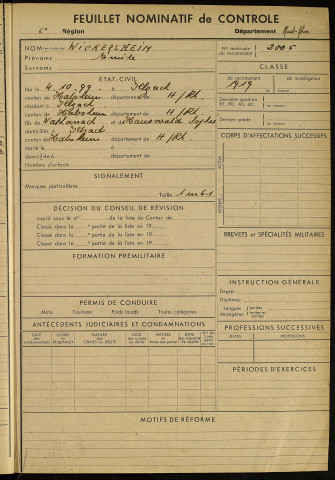 FEUILLET NOMINATIF de CONTROLE
6e Région Département Haut-Rhin
NOM WICKERSHEIM
Prénoms Emile
Surnoms
N° matricule de recrutement 2005
CLASSE
1919
ÉTAT-CIVIL
Né le 4.10.99 à Illzach
canton de Habsheim département de H/Rh.
résidant à Illzach
canton de Habsheim département de H/Rh.
Fils de et de Hauswald Sophie
domiciliés à Illzach
canton de Habsheim département de H/Rh.
Marié le à
domicilié à département de
Nombre d'enfants
SIGNALEMENT
Marques particulières
Taille 1m61
Dernière position
Dernier grade
CORPS D'AFFECTATIONS SUCCESSIFS
ACTIVE
RÉSERVE
DÉCISION DU CONSEIL DE RÉVISION
Inscrit sous le n° de la liste du Canton de
Classé dans la e partie de la liste en 19
Classé dans la e partie de la liste en 19
Classé dans la e partie de la liste en 19
BREVETS et SPÉCIALITÉS MILITAIRES
FORMATION PRÉMILITAIRE
INSTRUCTION GÉNÉRALE
Degré:
Diplômes:
Langues étrangères parlées écrites
PERMIS DE CONDUIRE
Moto Tourisme Poids lourds Toutes catégories
ANTÉCÉDENTS JUDICIAIRES ET CONDAMNATIONS
PROFESSIONS SUCCESSIVES
PÉRIODES D'EXERCICES
MOTIFS DE RÉFORME